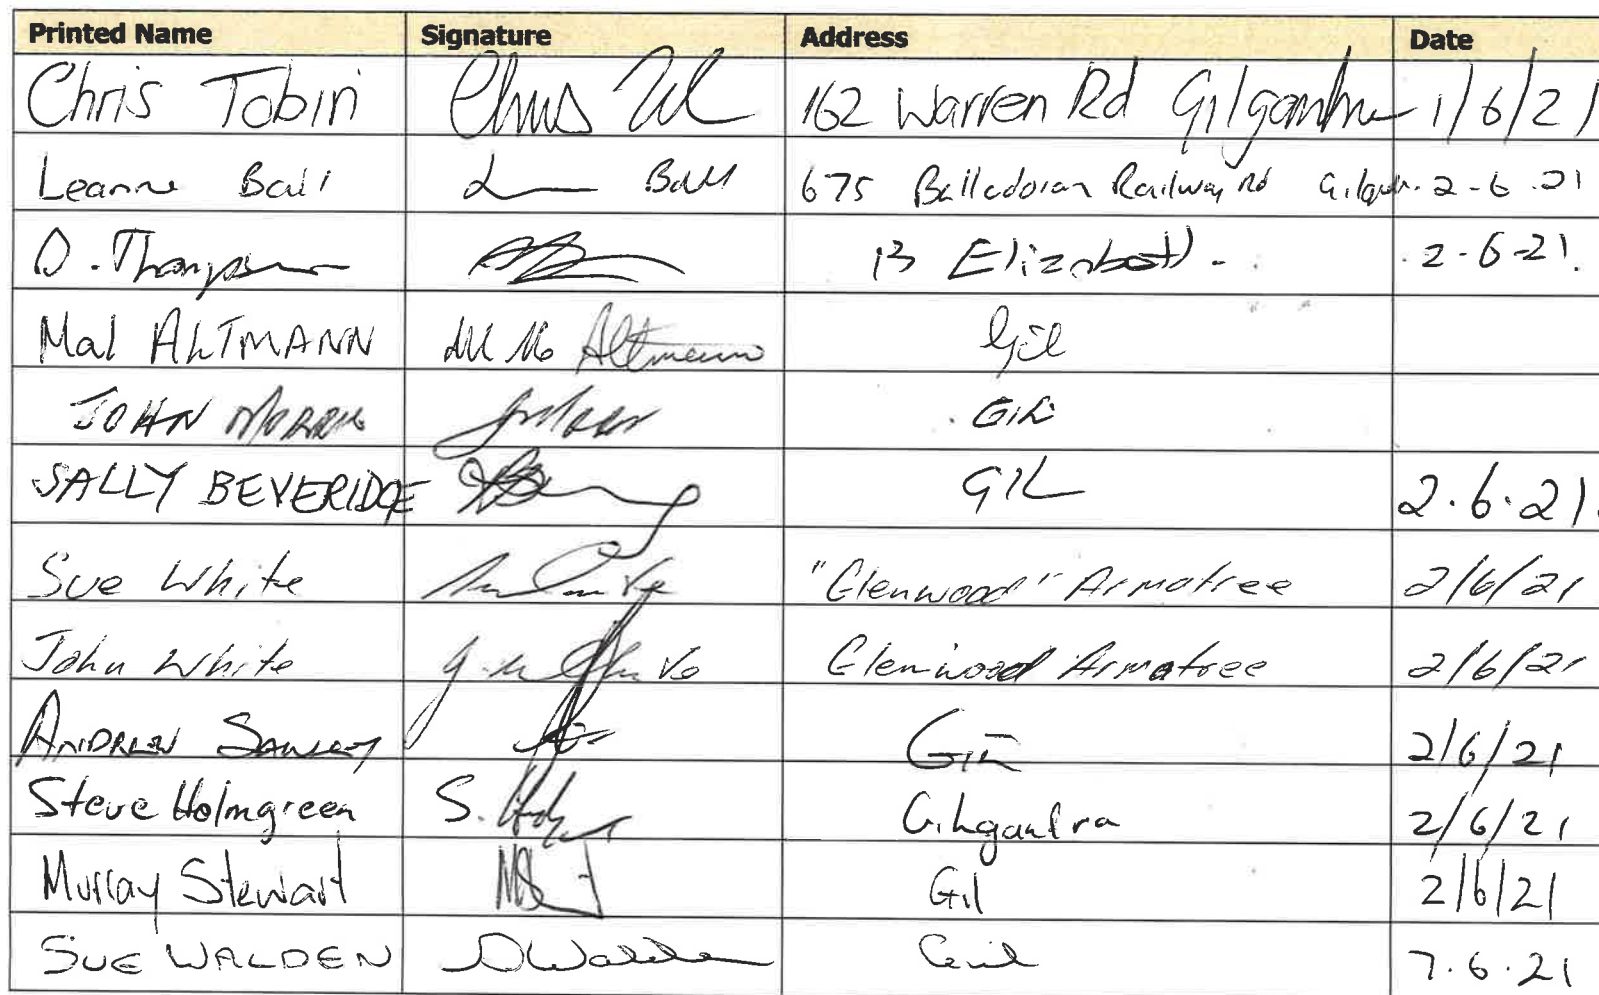 Printed Name Signature Address Date
Chris Tobin Chris 162 Warren Rd Gilgandra 1/6/21
Leanne Ball L Ball 675 Balladoran Railway Rd 2-6-21
D. Thompson 13 Elizabeth. 2-6-21.
Mal ALTMANN Altmann Gil
JOHN MORRIS GIL
SALLY BEVERIDGE GIL 2.6.21.
Sue White "Glenwood" Armatree 2/6/21
John White Glenwood Armatree 2/6/21
ANDREW GIL 2/6/21
Steve Holmgreen S. Gilgandra 2/6/21
Murray Stewart Gil 2/6/21
SUE WALDEN SWalden Gil 7.6.21